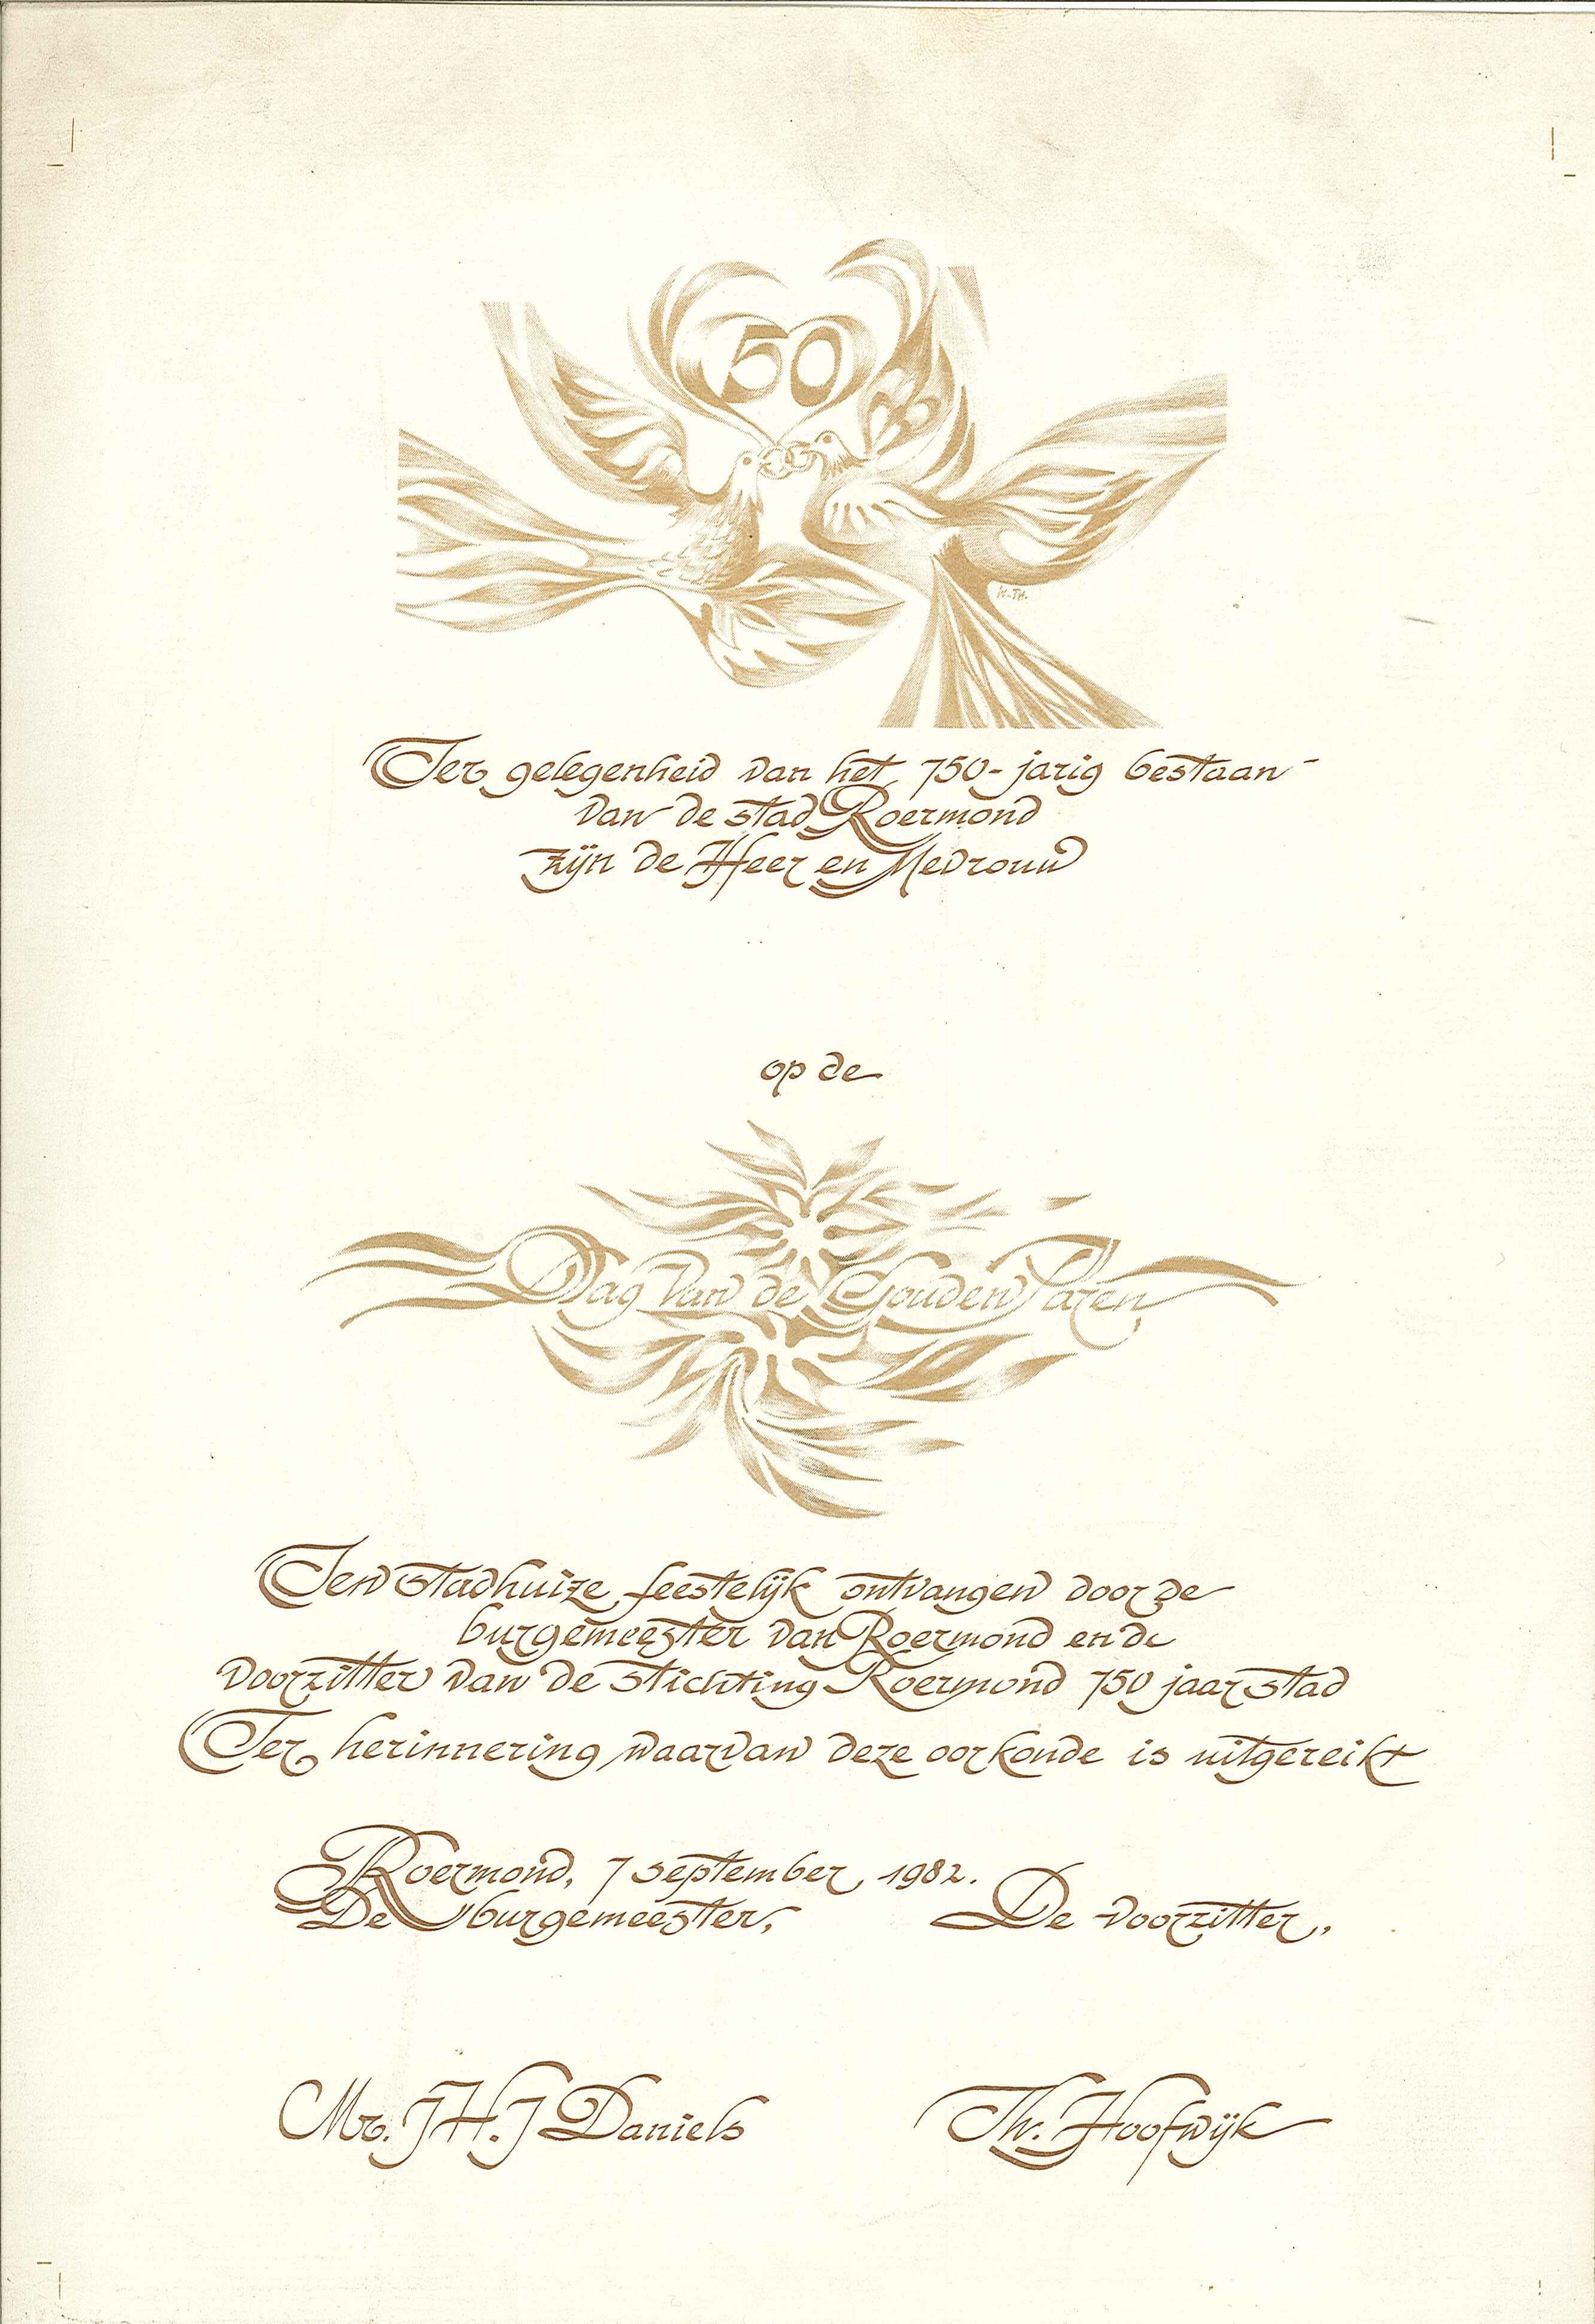 50
W.TH.
Ter gelegenheid van het 750-jarig bestaan
van de stad Roermond
zijn de Heer en Mevrouw
op de
Dag van de Gouden Paren
Ten stadhuize feestelijk ontvangen door de
burgemeester van Roermond en de
voorzitter van de stichting Roermond 750 jaar stad
Ter herinnering waarvan deze oorkonde is uitgereikt
Roermond, 7 september 1982.
De burgemeester, De voorzitter,
Mr. J.H.J Daniels Th. Hoofwijk